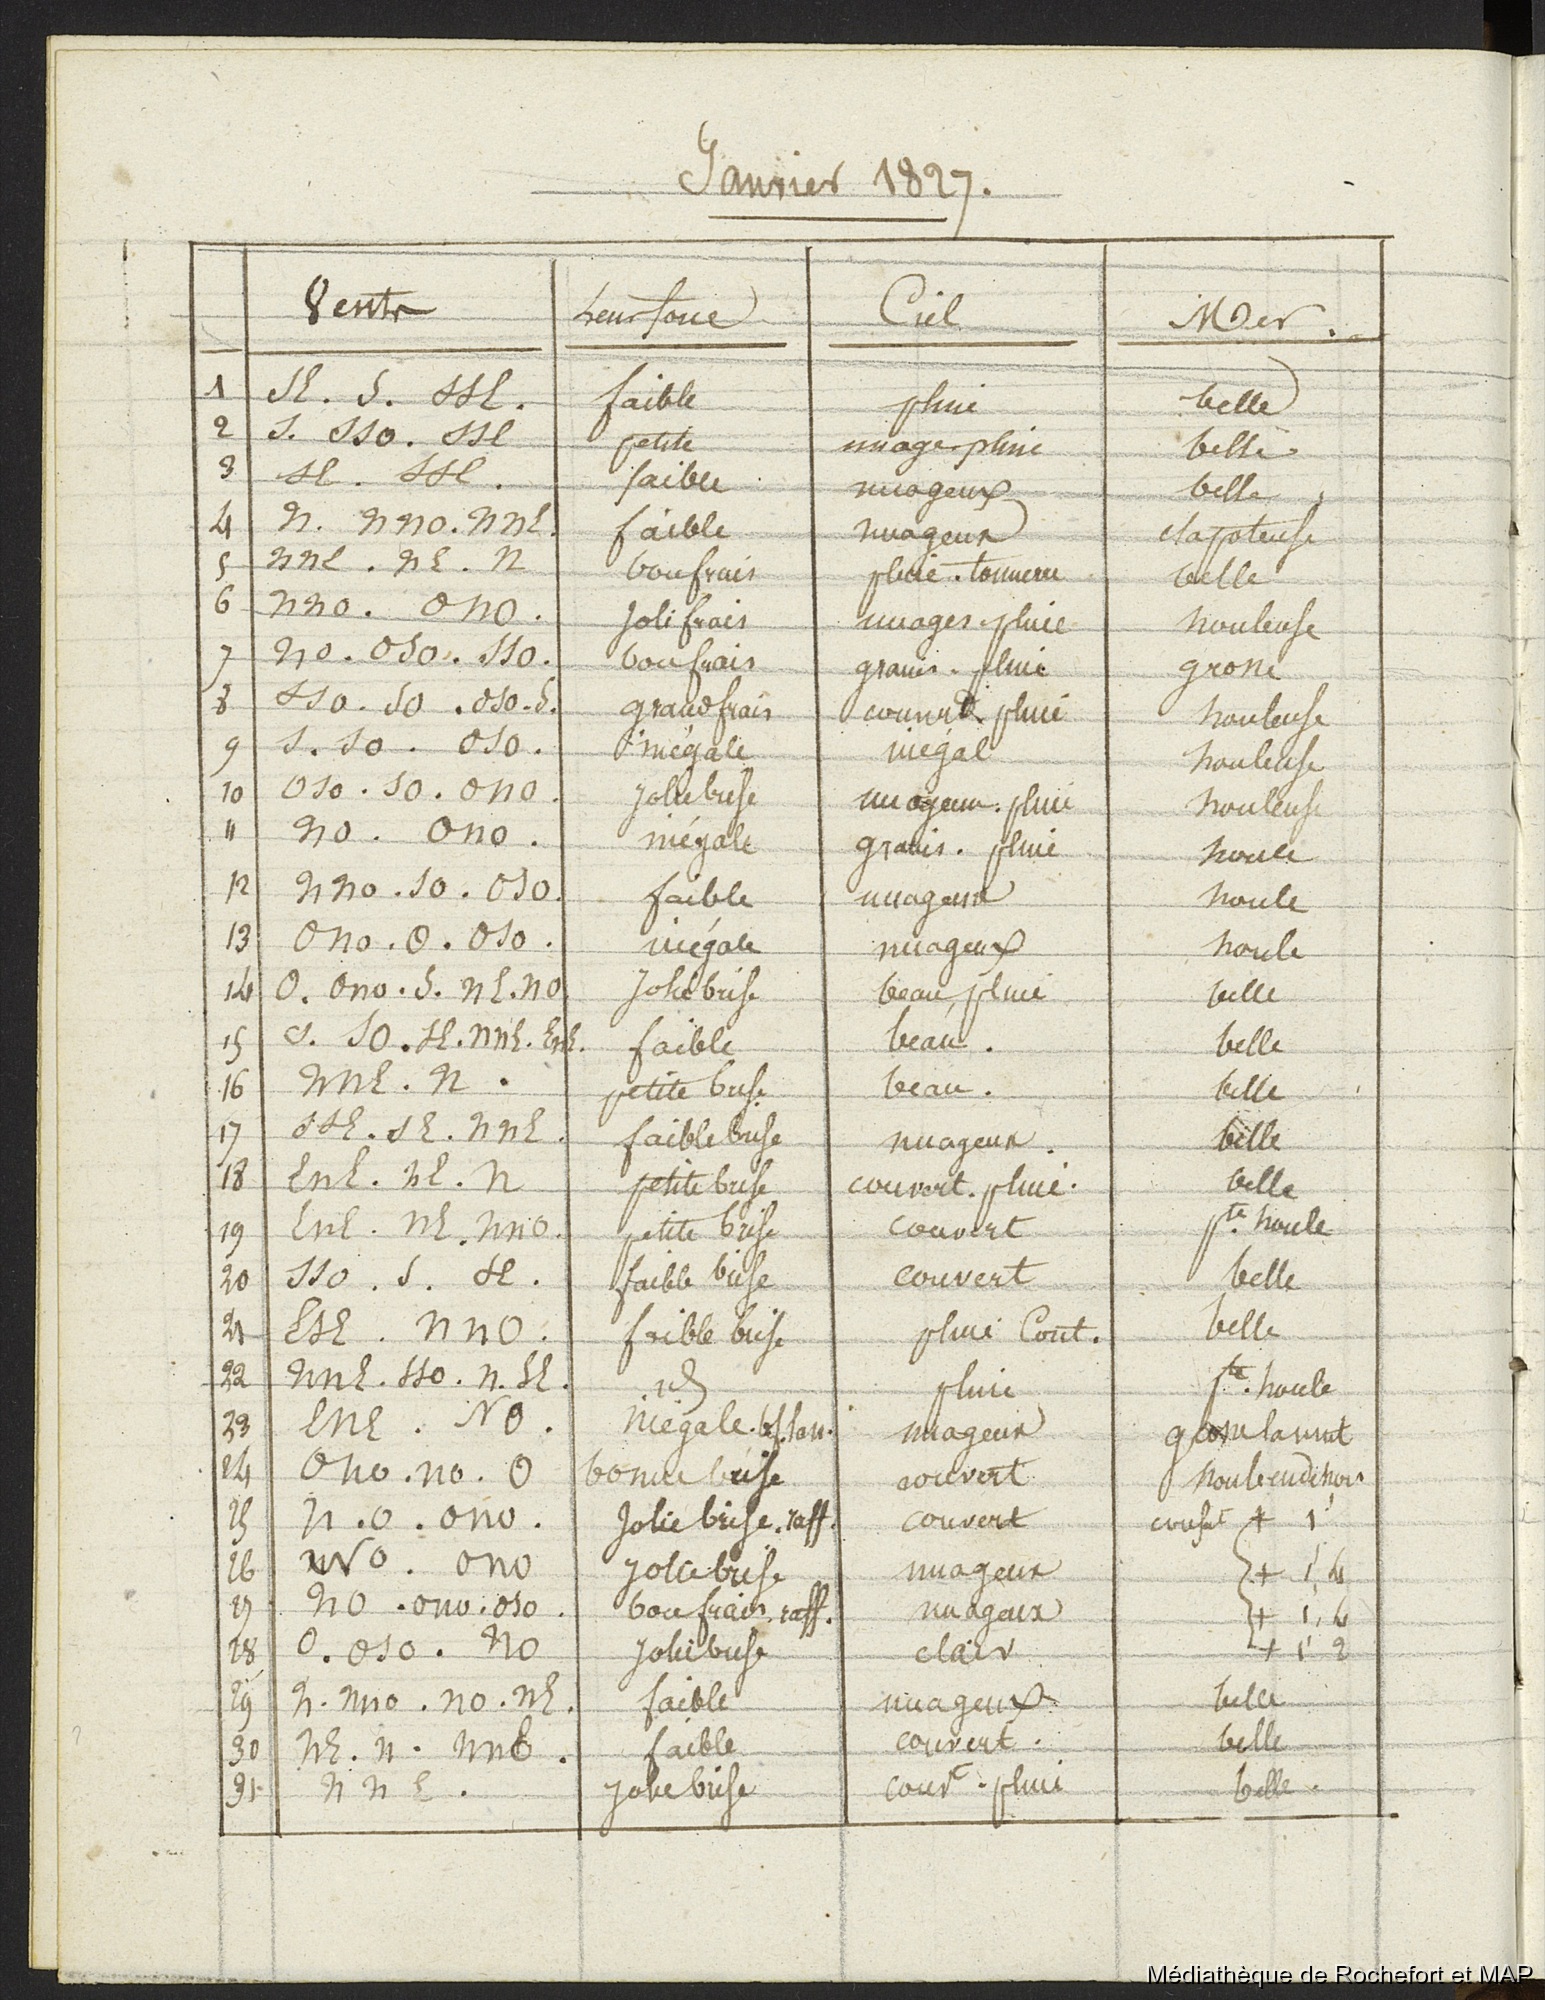 Janvier 1827.
Vents leur force Ciel Mer.
1 SE. S. SSE. faible pluie belle
2 S. SSO. SSE petite nuage pluie belle
3 SE. SSE. faible nuageux belle
4 N. NNO. NNE. faible nuageux clapoteuse
5 NNE. NE. N bon frais pluie. tonnerre belle
6 NNO. ONO. joli frais nuages. pluie houleuse
7 NO. OSO. SSO. bon frais grains. pluie grosse
8 SSO. SO. OSO. S. grand frais couvert. pluie houleuse
9 S. SO. OSO. inégale inégal houleuse
10 OSO. SO. ONO. jolie brise nuageux. pluie houleuse
11 NO. ONO. inégale grains. pluie houle
12 NNO. SO. OSO. faible nuageux houle
13 ONO. O. OSO. inégale nuageux houle
14 O. ONO. S. NE. NO jolie brise beau, pluie belle
15 S. SO. SE. NNE. ENE. faible beau. belle
16 NNE. N. petite brise beau. belle
17 SSE. SE. NNE. faible brise nuageux. belle
18 ENE. NE. N petite brise couvert. pluie. belle
19 ENE. NE. NNO. petite brise couvert pte. houle
20 SSO. S. SE. faible brise couvert belle
21 ESE. NNO. faible brise pluie Cont. belle
22 NNE. SSO. N. SE. id pluie pte. houle
23 ENE. NO. inégale. nuageux grosse la nuit
24 ONO. NO. O bonne brise couvert houle en dehors
25 N. O. ONO. Jolie brise. raff. couvert + 1'
26 NNO. ONO jolie brise nuageux + 1, 4
27 NO. ONO. OSO. bon frais. raff. nuageux + 1, 4
28 O. OSO. NO jolie brise clair + 1' 2
29 N. NNO. NO. NE. faible nuageux belle
30 NE. N. NNE. faible couvert. belle
31 NNE. jolie brise couvt. pluie belle.
Médiathèque de Rochefort et MAP